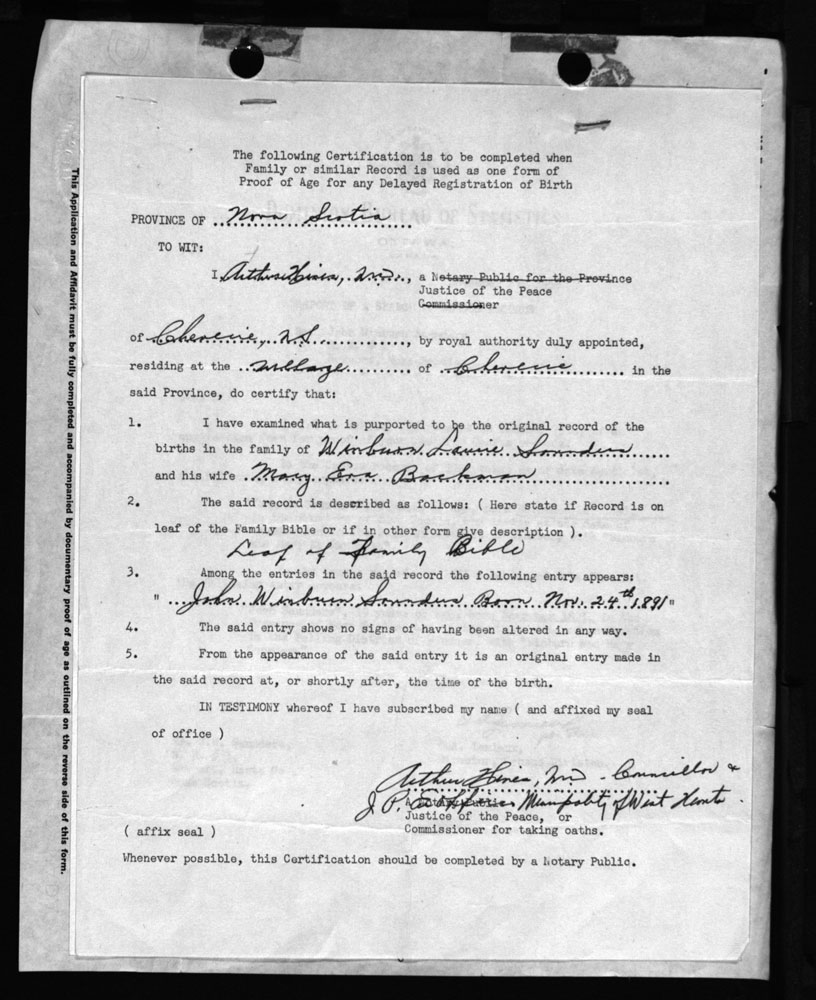 The following Certification is to be completed when
Family or similar Record is used as one form of
Proof of Age for any Delayed Registration of Birth
PROVINCE OF .. Nova Scotia
TO WIT:
I Arthur Hines, M.D., a Notary Public for the Province
Justice of the Peace
Commissioner
of Cheverie, N.S. , by royal authority duly appointed,
residing at the village of Cheverie in the
said Province, do certify that:
1. I have examined what is purported to be the original record of the
births in the family of Winburn Laurie Saunders
and his wife Mary Eva Backman
2. The said record is described as follows: ( Here state if Record is on
leaf of the Family Bible or if in other form give description ).
Leaf of Family Bible
3. Among the entries in the said record the following entry appears:
" John Winburn Saunders Born Nov. 24th 1891 "
4. The said entry shows no signs of having been altered in any way.
5. From the appearance of the said entry it is an original entry made in
the said record at, or shortly after, the time of the birth.
IN TESTIMONY whereof I have subscribed my name ( and affixed my seal
of office )
Arthur Hines, M.D. - Councillor &
J. P. Municipality of West Hants.
Justice of the Peace, or
( affix seal ) Commissioner for taking oaths.
Whenever possible, this Certification should be completed by a Notary Public.
This Application and Affidavit must be fully completed and accompanied by documentary proof of age as outlined on the reverse side of this form.